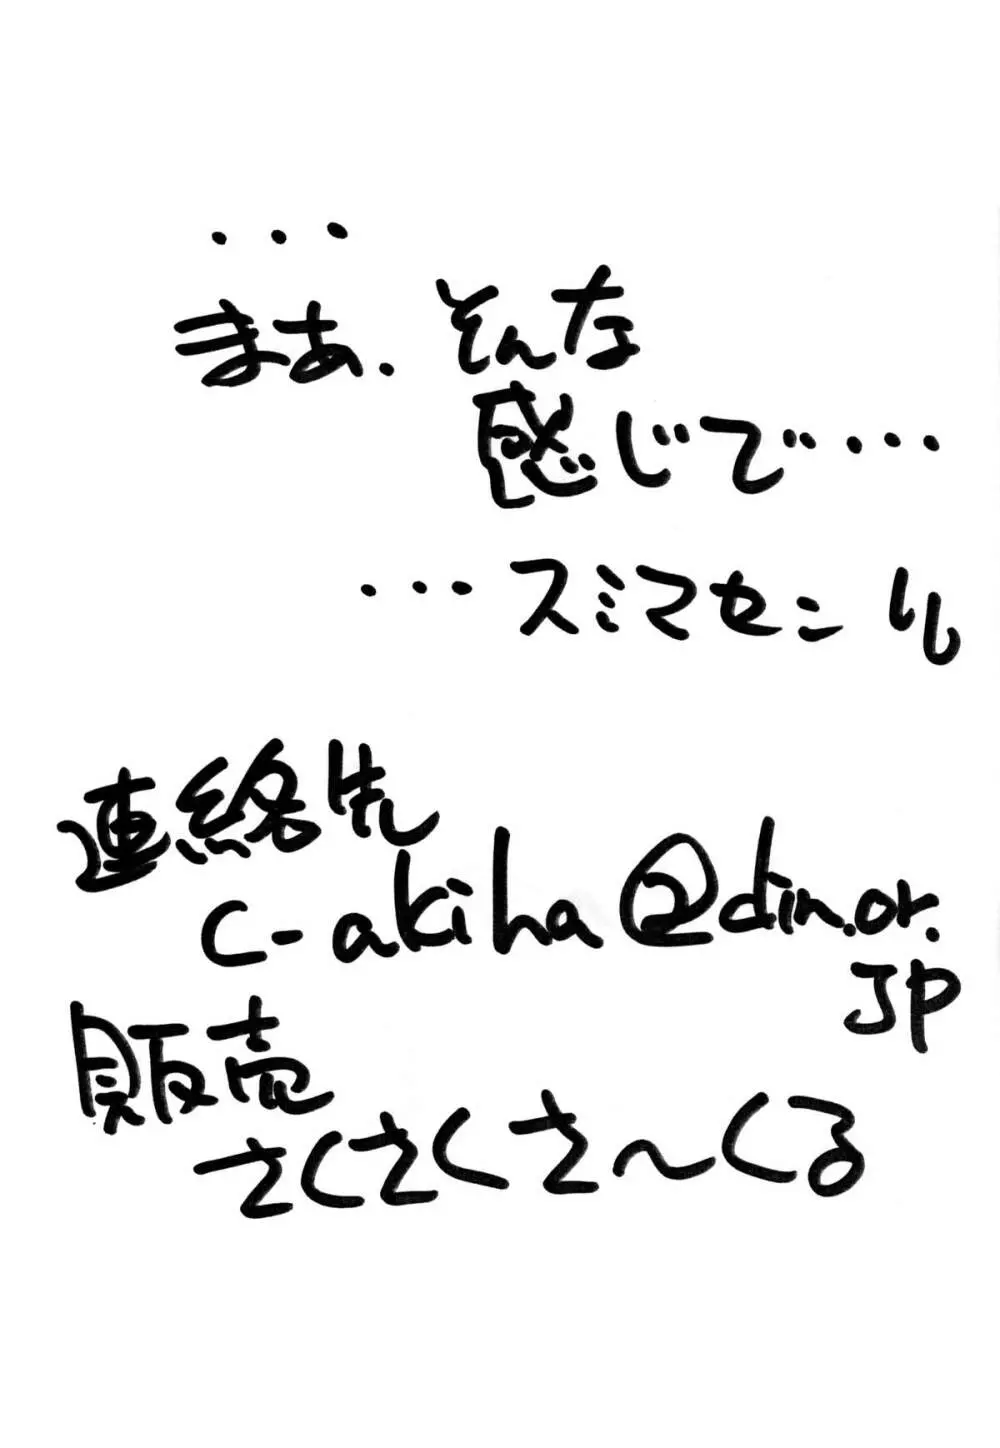 ・・・
まあ、そんな
感じで・・・・
・・・スミマセン
連絡先
c-akiha@din.or.
JP
販売
さくさくさ～くる